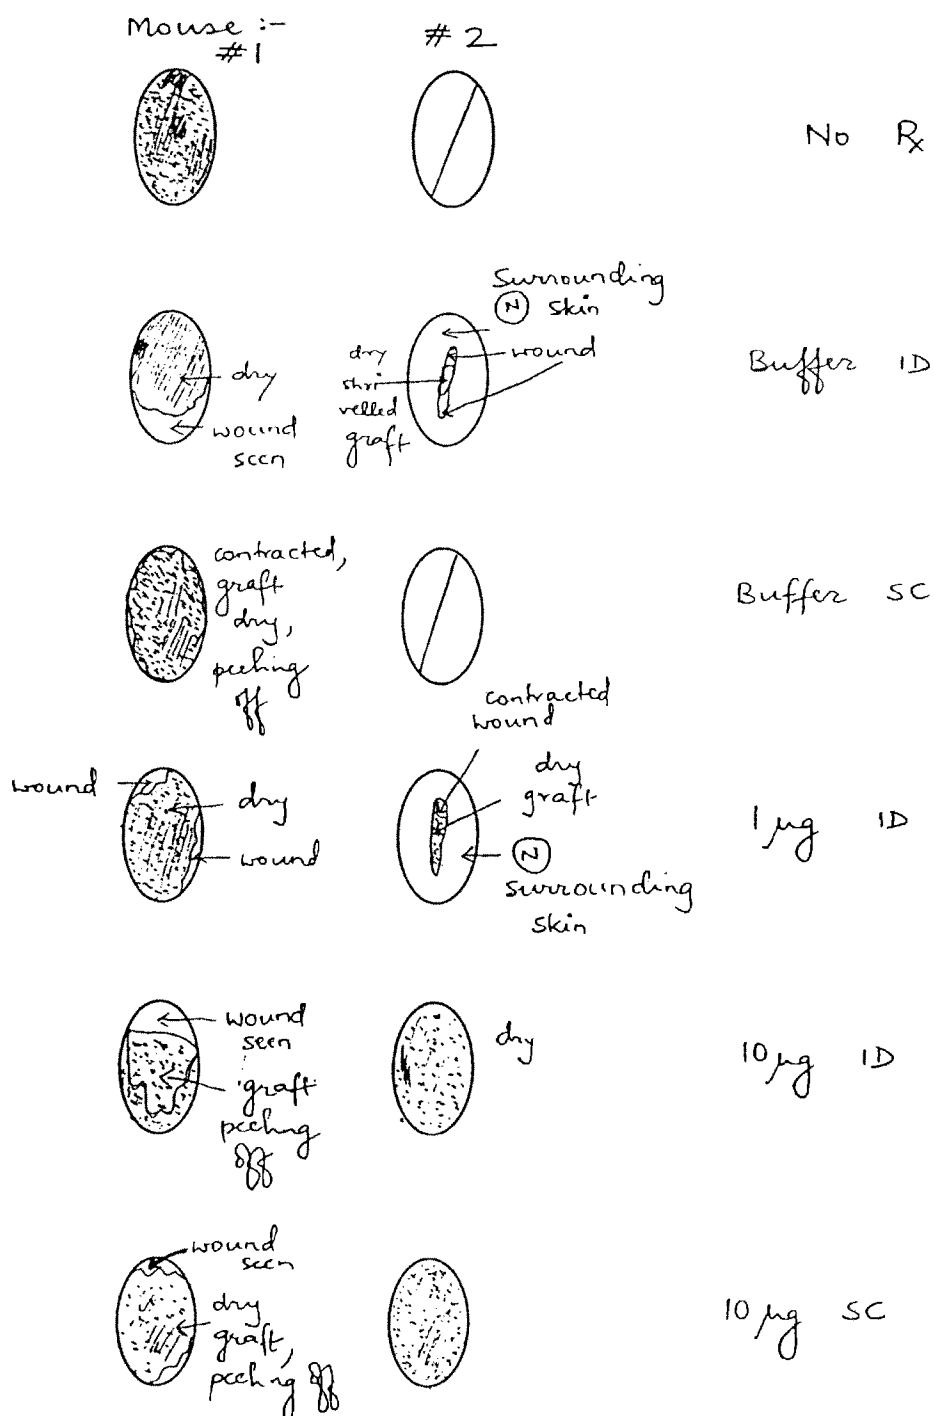 Mouse :-
#1
#2
No Rx
Surrounding
N skin
dry
wound seen
dry
shri
velled
graft
wound
Buffer ID
contracted,
graft
dry,
peeling
off
Buffer SC
contracted
wound
wound
dry
wound
dry
graft
N
surrounding
skin
1 µg ID
wound
seen
graft
peeling
off
dry
10 µg ID
wound
seen
dry
graft,
peeling off
10 µg SC